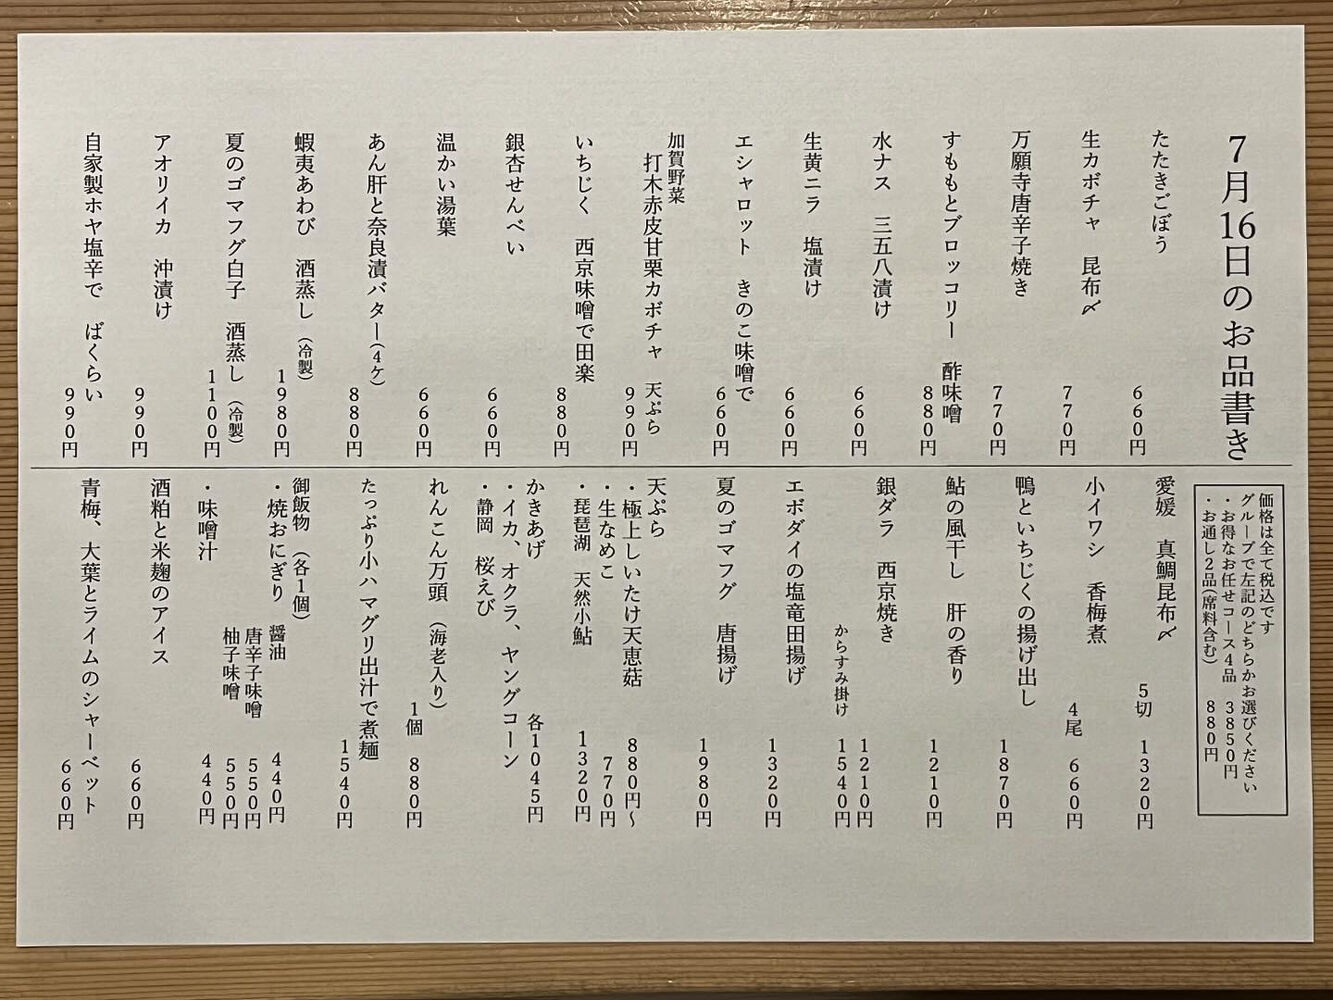 7月16日のお品書き
たたきごぼう
660円
生カボチャ　昆布〆
770円
万願寺唐辛子焼き
770円
すももとブロッコリー　酢味噌
880円
水ナス　三五八漬け
660円
生黄ニラ　塩漬け
660円
エシャロット　きのこ味噌で
660円
加賀野菜
打木赤皮甘栗カボチャ　天ぷら
990円
いちじく　西京味噌で田楽
880円
銀杏せんべい
660円
温かい湯葉
660円
あん肝と奈良漬バター(4ヶ)
880円
蝦夷あわび　酒蒸し（冷製）
1980円
夏のゴマフグ白子　酒蒸し（冷製）
1100円
アオリイカ　沖漬け
990円
自家製ホヤ塩辛で　ばくらい
990円
価格は全て税込です
グループで左記のどちらかお選びください
・お得なお任せコース4品　3850円
・お通し2品(席料含む)　880円
愛媛　真鯛昆布〆
5切　1320円
小イワシ　香梅煮
4尾　660円
鴨といちじくの揚げ出し
1870円
鮎の風干し　肝の香り
1210円
銀ダラ　西京焼き
1210円
からすみ掛け　1540円
エボダイの塩竜田揚げ
1320円
夏のゴマフグ　唐揚げ
1980円
天ぷら
・極上しいたけ天恵菇　880円〜
・生なめこ　770円
・琵琶湖　天然小鮎　1320円
かきあげ　各1045円
・イカ、オクラ、ヤングコーン
・静岡　桜えび
れんこん万頭（海老入り）
1個　880円
たっぷり小ハマグリ出汁で煮麺
1540円
御飯物（各1個）
・焼おにぎり　醤油　440円
唐辛子味噌　550円
柚子味噌　550円
・味噌汁　440円
酒粕と米麹のアイス
660円
青梅、大葉とライムのシャーベット
660円